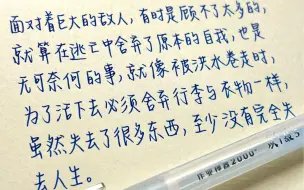 面对着巨大的敌人，有时是顾不了太多的，
就算在逃亡中舍弃了原本的自我，也是
无可奈何的事，就像被洪水卷走时，
为了活下去必须舍弃行李与衣物一样，
虽然失去了很多东西，至少没有完全失
去人生。
作业神器2000+